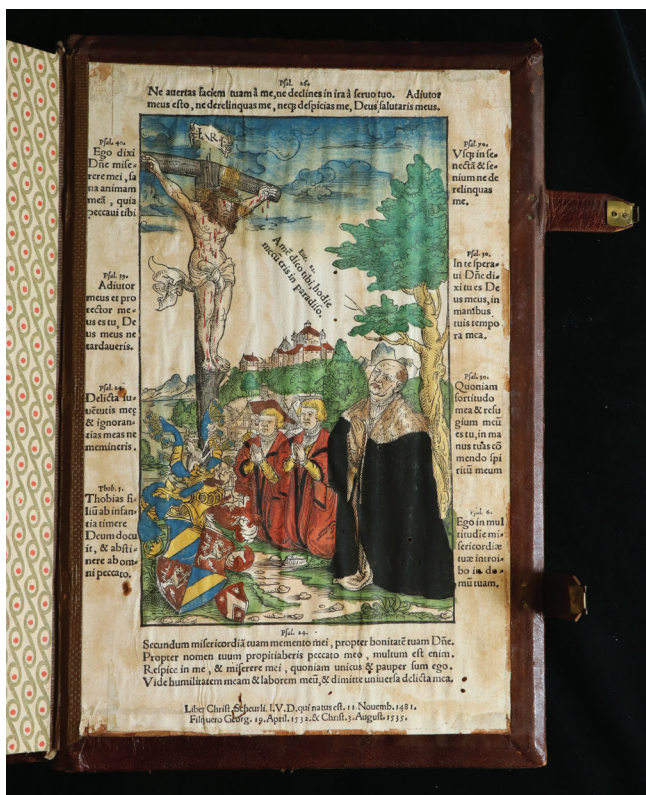 Psal. 26.
Ne auertas faciem tuam à me, ne declines in ira à seruo tuo. Adiutor
meus esto, ne derelinquas me, neq; despicias me, Deus salutaris meus.
Psal. 40.
Ego dixi
Dñe mise-
rere mei, sa
na animam
meã, quia
peccaui tibi
Psal. 39.
Adiutor
meus et pro
tector me-
us es tu, De
us meus ne
tardaueris.
Psal. 24.
Delicta iu-
uẽtutis meę
& ignoran-
tias meas ne
memineris.
Thob. 1.
Thobias fi-
liũ ab infan-
tia timere
Deum docu
it, & absti-
nere ab om-
ni peccato.
I.N.R.I.
Luc. 23.
Amẽ dico tibi, hodie
mecũ eris in paradiso.
Psal. 70.
Vsq; in se-
nectã & se-
nium ne de
relinquas
me.
Psal. 30.
In te spera-
ui Dñe di-
xi tu es De
us meus, in
manibus
tuis tempo
ra mea.
Psal. 30.
Quoniam
fortitudo
mea & refu
gium meũ
es tu, in ma
nus tuas cõ
mendo spi
ritũ meum
Psal. 5.
Ego in mul
titudie mi-
sericordiæ
tuæ introi-
bo in do-
mũ tuam.
Psal. 24.
Secundum misericordiã tuam memento mei, propter bonitatẽ tuam Dñe.
Propter nomen tuum propitiaberis peccato meo, multum est enim.
Respice in me, & miserere mei, quoniam unicus & pauper sum ego.
Vide humilitatem meam & laborem meũ, & dimitte uniuersa delicta mea.
Liber Christ. Scheurli. I.V.D. qui natus est. 11. Nouemb. 1481.
Filij uero Georg. 19. April. 1532. & Christ. 3. August. 1535.